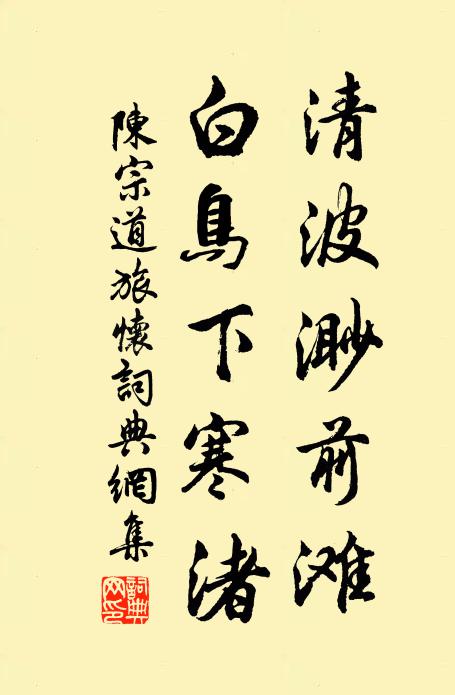 清波渺前滩
白鳥下寒渚
陳宗道旅懷詞典網集
詞典網印